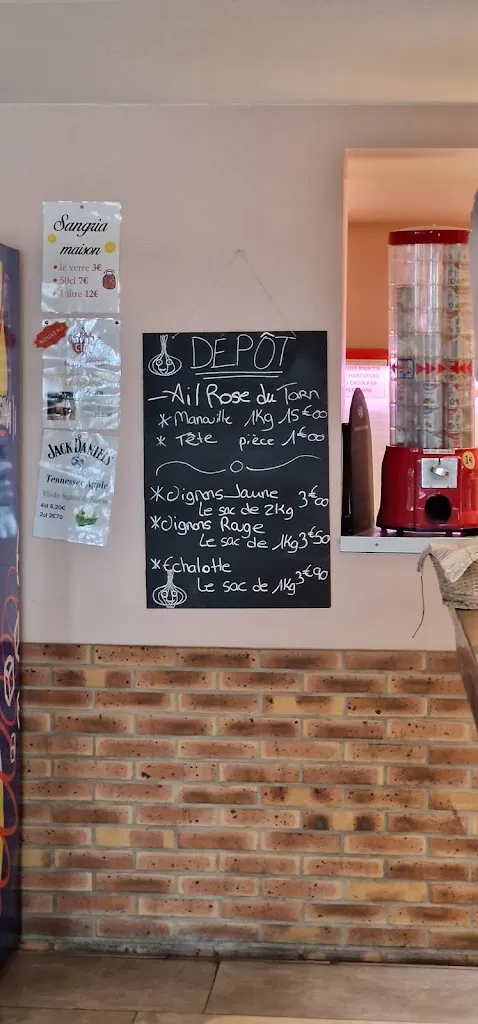 Sangria
maison
• le verre 3€
• 50cl 7€
• 1 litre 12€
NOUVEAU
JACK DANIEL'S
Tennessee Apple
4cl 5,20€
2cl 2€70
DEPÔT
- Ail Rose du Tarn
* Manouille 1Kg 15€00
* Tête pièce 1€00
* Oignons Jaune
Le sac de 2kg 3€00
* Oignons Rouge
Le sac de 1Kg 3€50
* Echalotte
Le sac de 1Kg 3€90